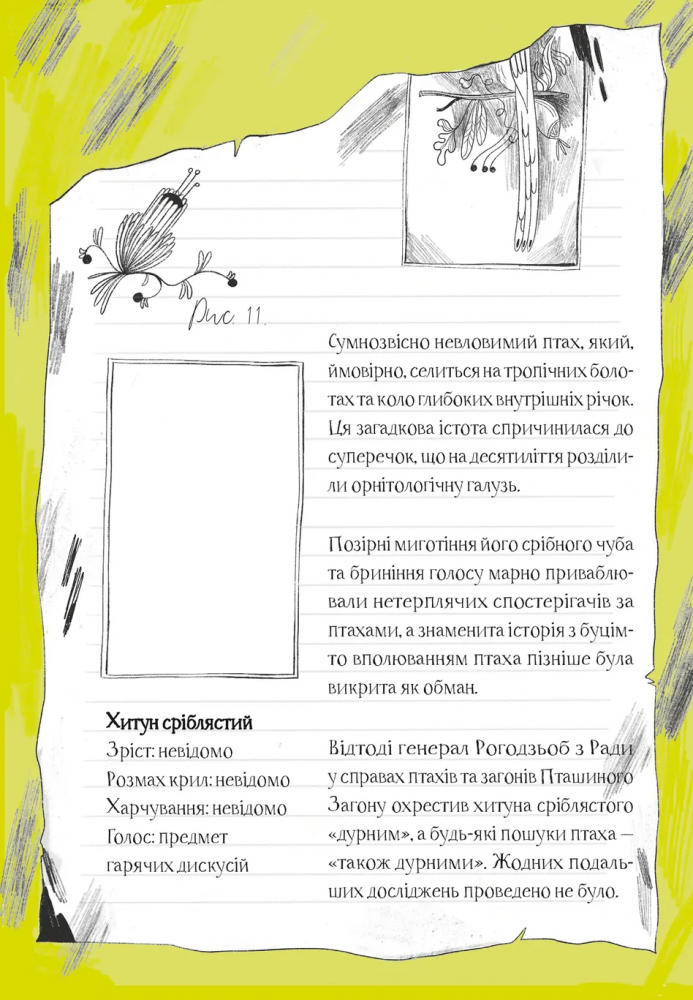 Рис. 11.
Сумнозвісно невловимий птах, який,
ймовірно, селиться на тропічних боло-
тах та коло глибоких внутрішніх річок.
Ця загадкова істота спричинилася до
суперечок, що на десятиліття розділи-
ли орнітологічну галузь.
Позірні миготіння його срібного чуба
та бриніння голосу марно приваблю-
вали нетерплячих спостерігачів за
птахами, а знаменита історія з буцім-
то вполюванням птаха пізніше була
викрита як обман.
Відтоді генерал Рогодзьоб з Ради
у справах птахів та загонів Пташиного
Загону охрестив хитуна сріблястого
«дурним», а будь-які пошуки птаха —
«також дурними». Жодних подаль-
ших досліджень проведено не було.
Хитун сріблястий
Зріст: невідомо
Розмах крил: невідомо
Харчування: невідомо
Голос: предмет
гарячих дискусій